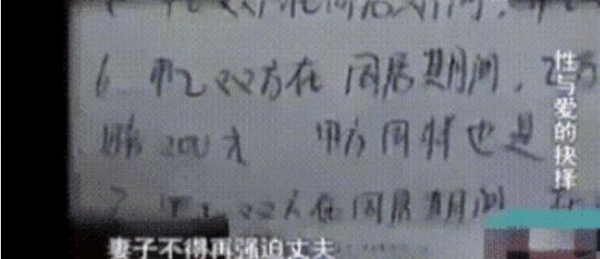 6 甲乙双方在同居期间，乙方
200元 甲方同样也是
7 甲乙双方在同居期间
性与爱的抉择
妻子不得再强迫丈夫